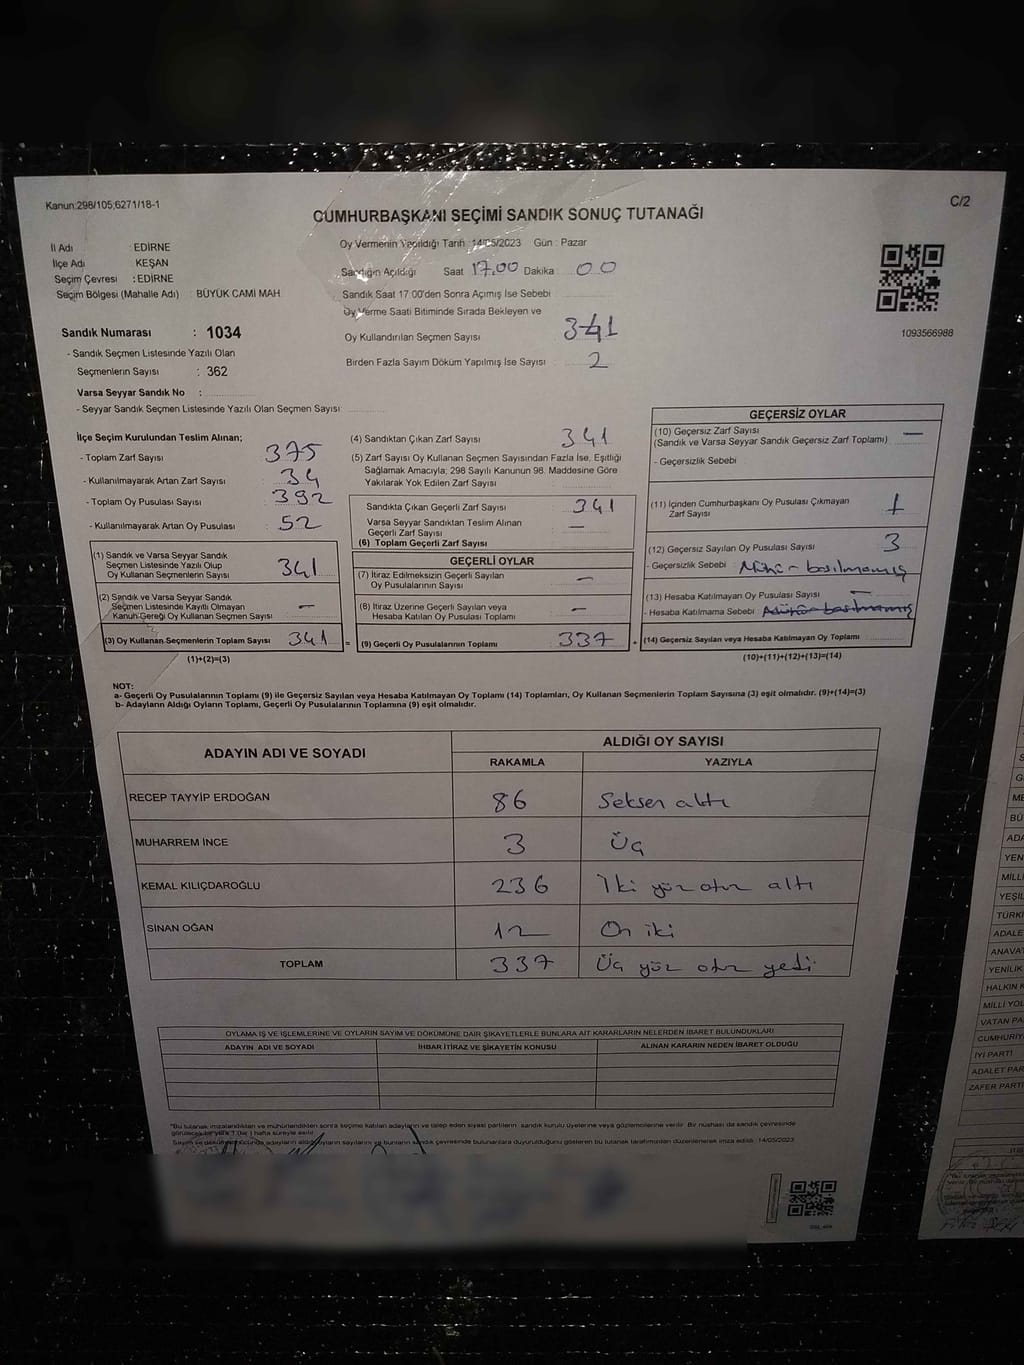 Kanun:298/105,6271/18-1
C/2
CUMHURBAŞKANI SEÇİMİ SANDIK SONUÇ TUTANAĞI
İl Adı : EDİRNE
İlçe Adı KEŞAN
Seçim Çevresi : EDİRNE
Seçim Bölgesi (Mahalle Adı) : BÜYÜK CAMİ MAH
Sandık Numarası : 1034
- Sandık Seçmen Listesinde Yazılı Olan
Seçmenlerin Sayısı : 362
Varsa Seyyar Sandık No :
- Seyyar Sandık Seçmen Listesinde Yazılı Olan Seçmen Sayısı
Oy Vermenin Yapıldığı Tarih : 14/05/2023 Gün : Pazar
Sandığın Açıldığı Saat 17.00 Dakika 00
Sandık Saat 17:00'den Sonra Açımış İse Sebebi
Oy Verme Saati Bitiminde Sırada Bekleyen ve
Oy Kullandırılan Seçmen Sayısı 341
Birden Fazla Sayım Döküm Yapılmış İse Sayısı 2
1093566988
İlçe Seçim Kurulundan Teslim Alınan;
- Toplam Zarf Sayısı 375
- Kullanılmayarak Artan Zarf Sayısı 34
- Toplam Oy Pusulası Sayısı 392
- Kullanılmayarak Artan Oy Pusulası 52
(1) Sandık ve Varsa Seyyar Sandık
Seçmen Listesinde Yazılı Olup
Oy Kullanan Seçmenlerin Sayısı 341
(2) Sandık ve Varsa Seyyar Sandık
Seçmen Listesinde Kayıtlı Olmayan
Kanun Gereği Oy Kullanan Seçmen Sayısı –
(3) Oy Kullanan Seçmenlerin Toplam Sayısı 341 =
(1)+(2)=(3)
(4) Sandıktan Çıkan Zarf Sayısı 341
(5) Zarf Sayısı Oy Kullanan Seçmen Sayısından Fazla İse, Eşitliği
Sağlamak Amacıyla; 298 Sayılı Kanunun 98. Maddesine Göre
Yakılarak Yok Edilen Zarf Sayısı
Sandıkta Çıkan Geçerli Zarf Sayısı 341
Varsa Seyyar Sandıktan Teslim Alınan
Geçerli Zarf Sayısı –
(6) Toplam Geçerli Zarf Sayısı
GEÇERLİ OYLAR
(7) İtiraz Edilmeksizin Geçerli Sayılan
Oy Pusulalarının Sayısı –
(8) İtiraz Üzerine Geçerli Sayılan veya
Hesaba Katılan Oy Pusulası Toplamı –
(9) Geçerli Oy Pusulalarının Toplamı 337 +
GEÇERSİZ OYLAR
(10) Geçersiz Zarf Sayısı –
(Sandık ve Varsa Seyyar Sandık Geçersiz Zarf Toplamı)
- Geçersizlik Sebebi
(11) İçinden Cumhurbaşkanı Oy Pusulası Çıkmayan
Zarf Sayısı 1
(12) Geçersiz Sayılan Oy Pusulası Sayısı 3
- Geçersizlik Sebebi Mühür basılmamış
(13) Hesaba Katılmayan Oy Pusulası Sayısı –
- Hesaba Katılmama Sebebi Mühür basılmamış
(14) Geçersiz Sayılan veya Hesaba Katılmayan Oy Toplamı
(10)+(11)+(12)+(13)=(14)
NOT:
a- Geçerli Oy Pusulalarının Toplamı (9) ile Geçersiz Sayılan veya Hesaba Katılmayan Oy Toplamı (14) Toplamları, Oy Kullanan Seçmenlerin Toplam Sayısına (3) eşit olmalıdır. (9)+(14)=(3)
b- Adayların Aldığı Oyların Toplamı, Geçerli Oy Pusulalarının Toplamına (9) eşit olmalıdır.
ADAYIN ADI VE SOYADI
ALDIĞI OY SAYISI
RAKAMLA YAZIYLA
RECEP TAYYİP ERDOĞAN 86 Seksen altı
MUHARREM İNCE 3 Üç
KEMAL KILIÇDAROĞLU 236 İki yüz otuz altı
SİNAN OĞAN 12 On iki
TOPLAM 337 Üç yüz otuz yedi
OYLAMA İŞ VE İŞLEMLERİNE VE OYLARIN SAYIM VE DÖKÜMÜNE DAİR ŞİKAYETLERLE BUNLARA AİT KARARLARIN NELERDEN İBARET BULUNDUKLARI
ADAYIN ADI VE SOYADI İHBAR İTİRAZ VE ŞİKAYETİN KONUSU ALINAN KARARIN NEDEN İBARET OLDUĞU
*Bu tutanak imzalandıktan ve mühürlendikten sonra seçime katılan adayların ve talep eden siyasi partilerin sandık kurulu üyelerine veya gözlemcilerine verilir. Bir nüshası da sandık çevresinde
görülecek bir yere 1 (bir) hafta süreyle asılır.
Sayım ve dökümü sonucunda adayların aldığı oyların sayılarını ve bunların sandık çevresinde bulunanlara duyurulduğunu gösteren bu tutanak tarafımızdan düzenlenerek imza edildi. 14/05/2023
YEŞİL
TÜRKİ
ADALE
ANAVA
YENİLİK
HALKIN K
MİLLİ YOL
VATAN PA
CUMHURİY
İYİ PARTİ
ADALET PAR
ZAFER PARTİ